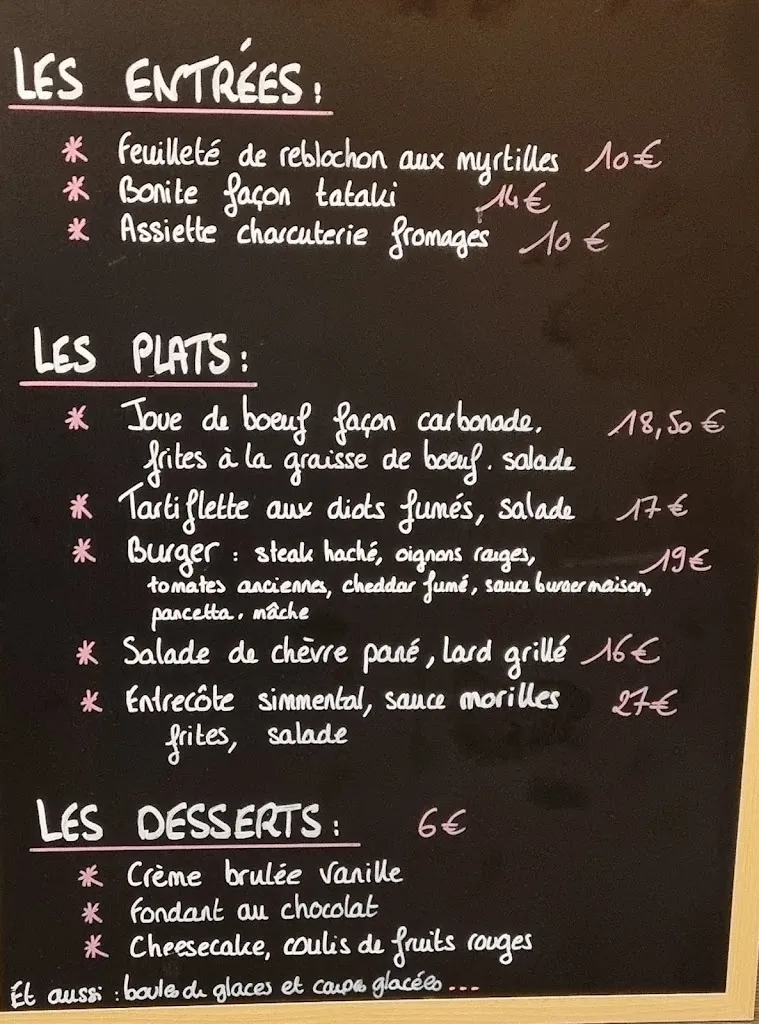 LES ENTRÉES :
* Feuilleté de reblochon aux myrtilles 10€
* Bonite façon tataki 14€
* Assiette charcuterie fromages 10€
LES PLATS :
* Joue de boeuf façon carbonade. 18,50€
frites à la graisse de boeuf. salade
* Tartiflette aux diots fumés, salade 17€
* Burger : steak haché, oignons rouges, 19€
tomates anciennes, cheddar fumé, sauce burger maison,
pancetta, mâche
* Salade de chèvre pané, lard grillé 16€
* Entrecôte simmental, sauce morilles 27€
frites, salade
LES DESSERTS : 6€
* Crème brulée vanille
* Fondant au chocolat
* Cheesecake, coulis de fruits rouges
Et aussi : boules de glaces et coupes glacées ...